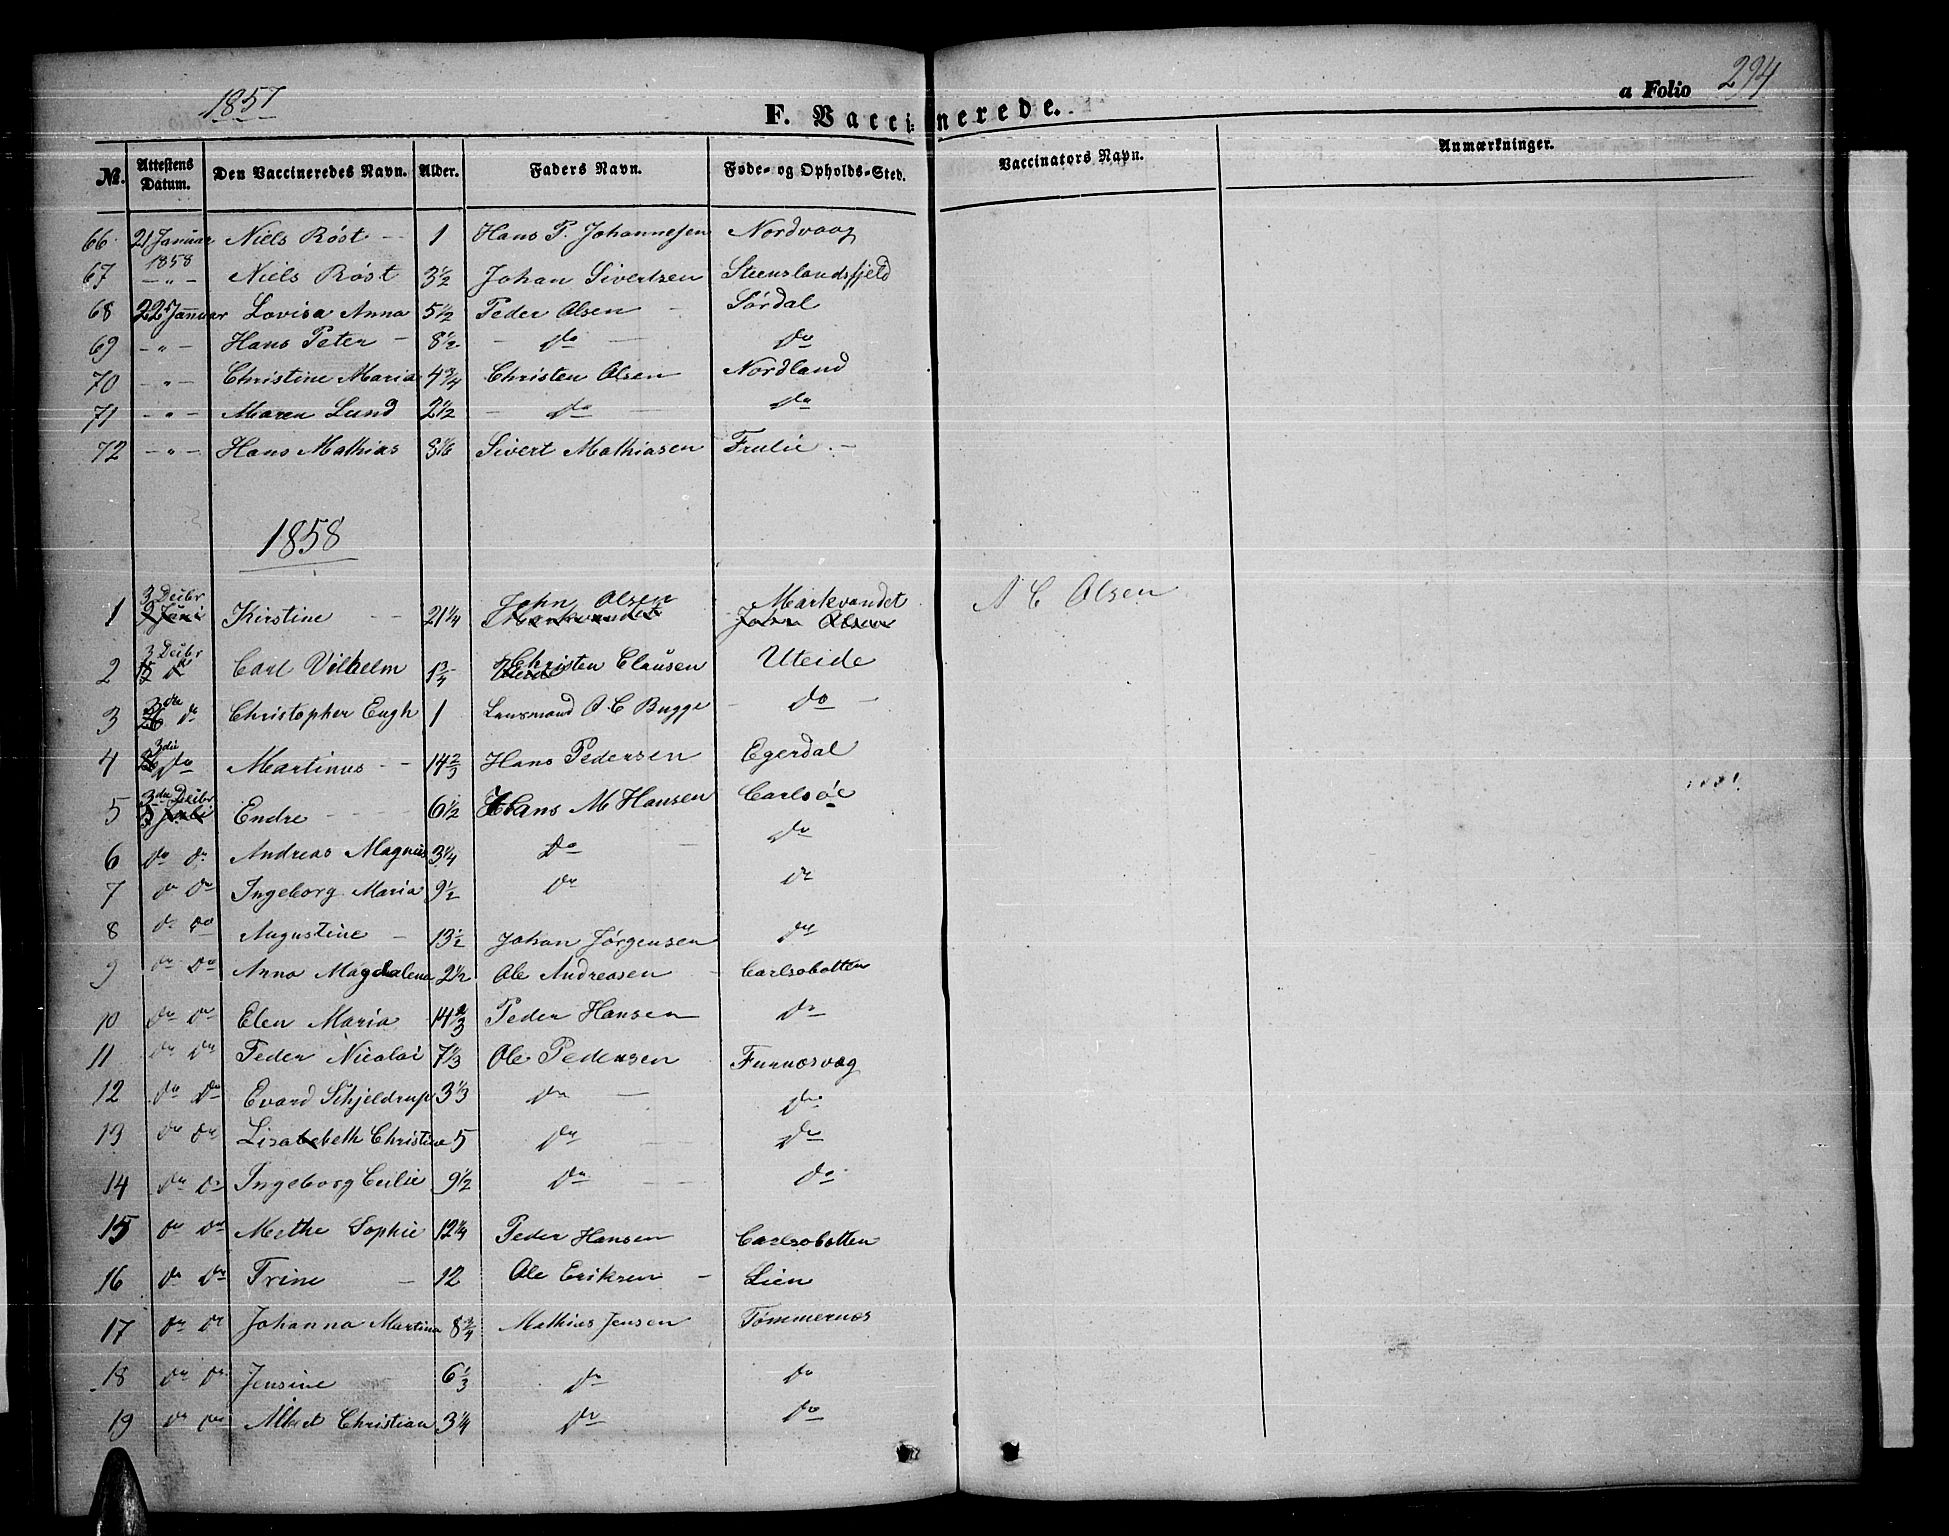 1857
F. Vaccinerede.
a Folio 294
No. Attestens Datum. Den Vaccineredes Navn. Alder. Faders Navn. Føde- og Opholds-Sted. Vaccinators Navn. Anmærkninger.
66 21 Januar 1858 Niels Røst - 1 Hans P. Johannesen Nordvaag
67 - " - Niels Røst 3 1/2 Johan Sivertsen Steenslandsfjeld
68 22 Januar Lovisa Anna 5 1/2 Peder Olsen - Sørdal
69 - " - Hans Peter - 8 1/2 - do - do
70 - " - Christine Maria 4 3/4 Christen Olsen Nordland
71 - " - Maren Lund 2 1/2 - do - do
72 - " - Hans Mathias Sivert Mathiasen Frulie -
1858
1 3 Decbr 2 Juni Kirstine - 21 1/4 John Olsen Markvandet Markvandet John Olsen A C Olsen
2 3 Decbr Carl Vilhelm 1 3/4 Christen Clausen Uteide
3 3 do 26 do Christopher Eugh 1 Lensmand O C Bugge - do -
4 3 do Martinus - - 14 2/3 Hans Pedersen Egerdal
5 3 do Decbr Endre - - - 6 1/2 Hans M Hansen Carlsøe
6 do do Andreas Magnus 3 1/4 Do - do
7 do do Ingeborg Maria 9 1/2 do do
8 do do Augustine - 13 1/2 Johan Jørgensen do
9 do Do Anna Magdalena 2 1/2 Ole Andreasen - Carlsobotten
10 do do Elen Maria 14 2/3 Peder Hansen do
11 do do Peder Nicolai 7 1/3 Ole Pedersen Furnæsvag
12 do do Evard Schjeldrup 3 1/3 do - do
13 do do Lisabeth Christine 5 do - do
14 do do Ingeborg Cecilie 9 1/2 do - - do
15 do do Methe Sophie 12 1/4 Peder Hansen Carlsobotten
16 do do Trine - 12 Ole Eriksen - Lien
17 do do Johanna Martina 8 3/4 Mathias Jensen Tømmernæs
18 do do Jensine 6 1/3 do do
19 do do Albert Christian 3 1/4 do do